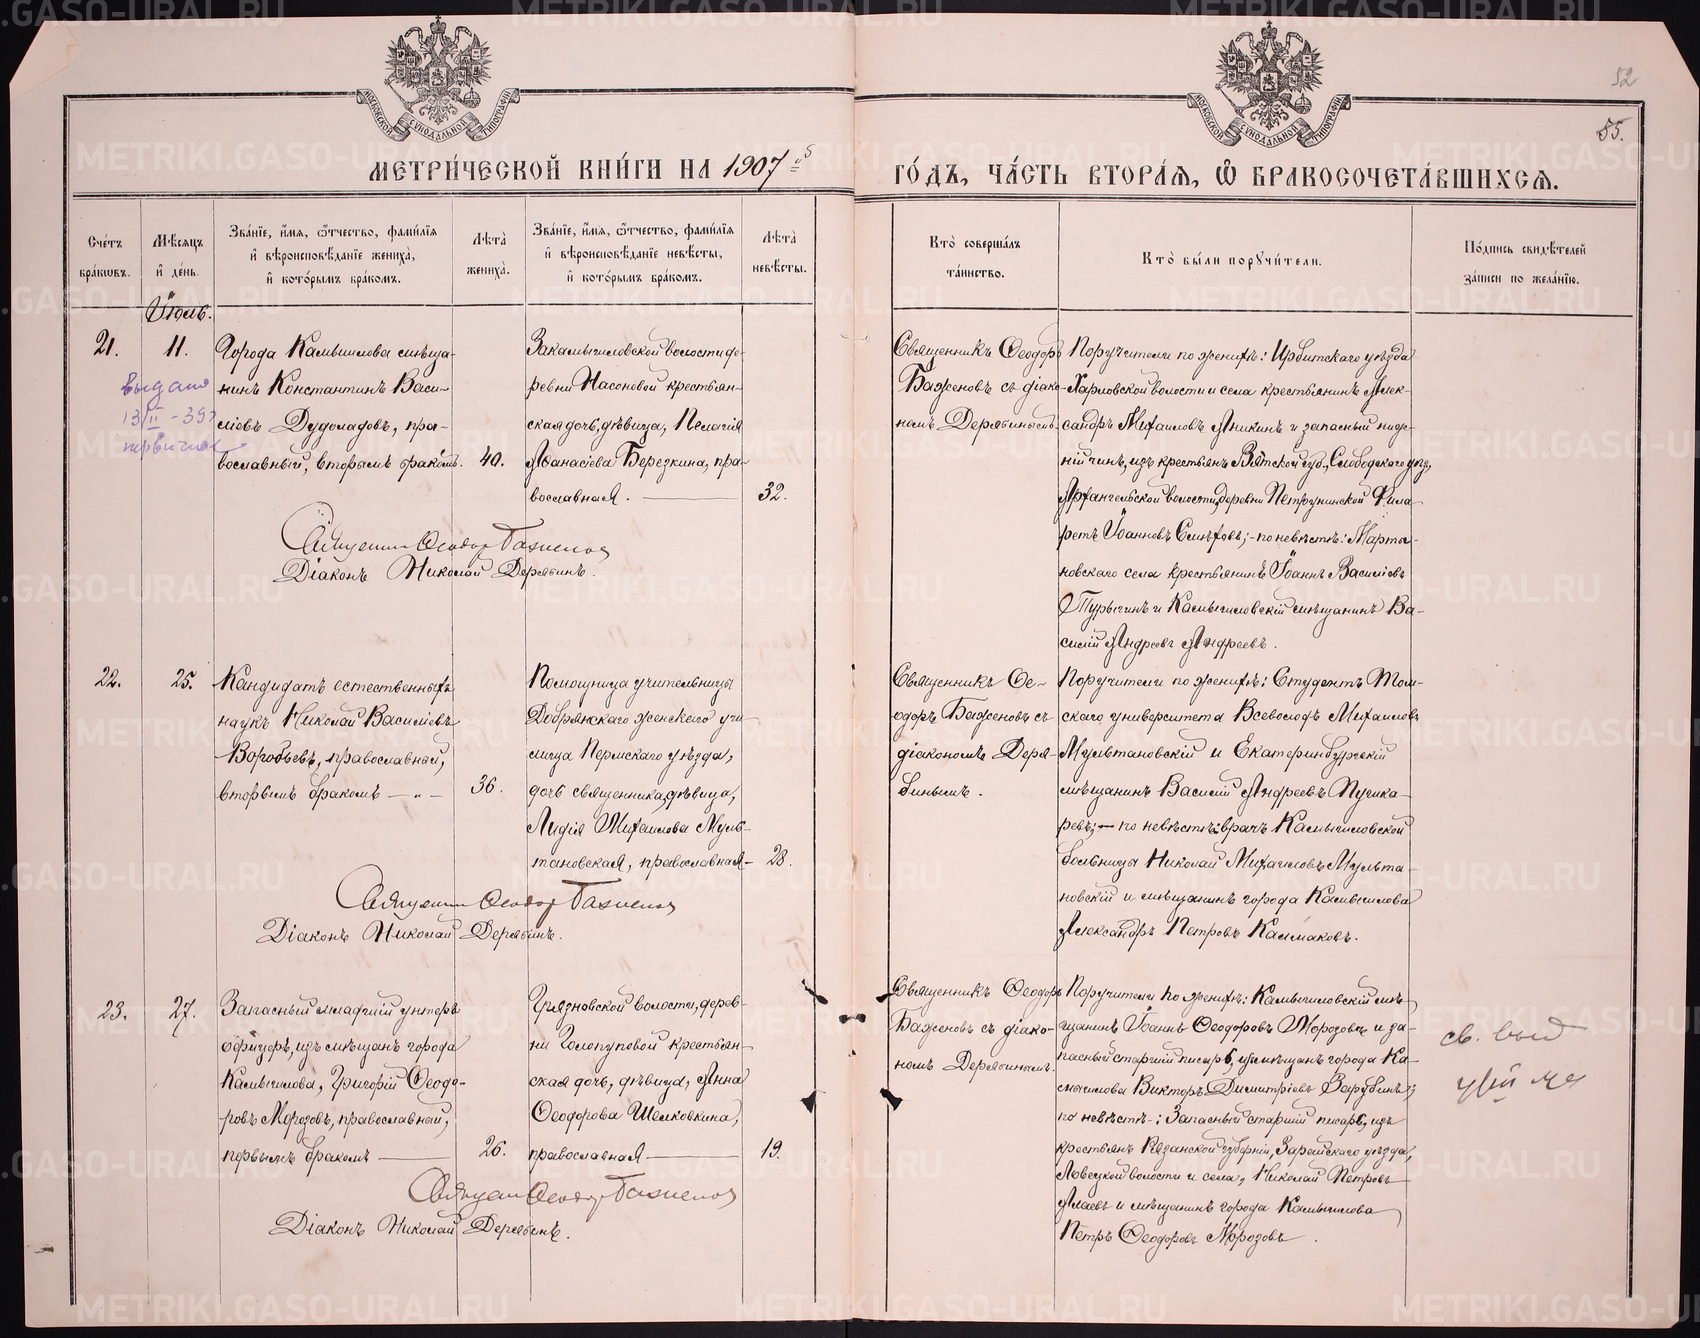 52
55.
МОСКОВСКОЙ СѴНОДАЛЬНОЙ ТИПОГРАФІИ
МОСКОВСКОЙ СѴНОДАЛЬНОЙ ТИПОГРАФІИ
МЕТРИ́ЧЕСКОЙ КНИ́ГИ НА 1907-ой
ГО́ДЪ, ЧА́СТЬ ВТОРА́Я, Ѡ БРАКОСОЧЕТА́ВШИХСѦ.
Сче́тъ бра́кѡвъ.
Мѣ́сѧцъ и҆ де́нь.
Зва́нїе, и҆́мѧ, ѻ҆́тчество, фами́лїѧ и҆ вѣроисповѣ́данїе жениха̀, и҆ кото́рымъ бра́комъ.
Лѣ́та̀ жениха̀.
Зва́нїе, и҆́мѧ, ѻ҆́тчество, фами́лїѧ и҆ вѣроисповѣ́данїе невѣ́сты, и҆ кото́рымъ бра́комъ.
Лѣ́та̀ невѣ́сты.
Кто̀ соверша́лъ та́инство.
Кто̀ бы́ли порꙋчи́тели.
По́дпись свидѣ́телей за́писи по жела́нїю.
Іюль.
21.
11.
выдано
Города Камышлова мѣща-
нинъ Константинъ Васи-
ліевъ Дудоладовъ, пра-
вославный, вторымъ бракомъ.
40.
Закамышловской волости де-
ревни Насоновой крестьян-
ская дочь, дѣвица, Пелагія
Аѳанасіева Березкина, пра-
вославная.
32.
Священникъ Ѳеодоръ
Баженовъ съ діако-
номъ Дерябинымъ.
Поручители по женихѣ: Ирбитскаго уѣзда
Харловской волости и села крестьянинъ Алек-
сандръ Михаиловъ Аникинъ и запасный ниж-
ній чинъ, изъ крестьянъ Вятской губ., Слободскаго уѣзд,
Архангельской волости, деревни Петрунинской Фила-
ретъ Іоанновъ Солѣ
по невѣстѣ: Марты-
новскаго села крестьянинъ Іоаннъ Василіевъ
Турыгинъ и Камышловскій мѣщанинъ Ва-
силій Андреевъ Андреевъ.
Священникъ Ѳеодоръ Баженовъ
Діаконъ Николай Дерябинъ.
22.
25.
Кандидатъ естественныхъ
наукъ Николай Василіевъ
Воробьевъ, православный,
вторымъ бракомъ — „ —
36.
Помощница учительницы
Добрянскаго женскаго учи-
лища Пермскаго уѣзда,
дочь священника, дѣвица,
Лидія Михаилова Муль-
тановская, православная —
28.
Священникъ Ѳе-
одоръ Баженовъ съ
діакономъ Деря-
бинымъ.
Поручители по женихѣ: Студентъ Том-
скаго университета Всеволодъ Михаиловъ
Мультановскій и Екатеринбургскій
мѣщанинъ Василій Андреевъ Пушка-
ревъ; — по невѣстѣ: врачъ Камышловской
больницы Николай Михаиловъ Мульта-
новскій и мѣщанинъ города Камышлова
Александръ Петровъ Калмаковъ.
Священникъ Ѳеодоръ Баженовъ
Діаконъ Николай Дерябинъ.
23.
27.
Запасный младшій унтеръ
офицеръ, изъ мѣщанъ города
Камышлова, Григорій Ѳеодо-
ровъ Морозовъ, православный,
первымъ бракомъ
26.
Грязновской волости, дерев-
ни Голопуповой крестьян-
ская дочь, дѣвица, Анна
Ѳеодорова Шелковкина,
православная
19.
Священникъ Ѳеодоръ
Баженовъ съ діако-
номъ Дерябинымъ.
Поручители по женихѣ: Камышловскій мѣ-
щанинъ Іоаннъ Ѳеодоровъ Морозовъ и за-
пасный старшій писарь, изъ мѣщанъ города Ка-
мышлова Викторъ Димитріевъ Зарубинъ;
по невѣстѣ: Запасный старшій писарь, изъ
крестьянъ Рязанской губерніи, Зарайскаго уѣзда,
Ловецкой волости и села, Николай Петровъ
и мѣщанинъ города Камышлова
Петръ Ѳеодоровъ Морозовъ.
св. выд
Священникъ Ѳеодоръ Баженовъ
Діаконъ Николай Дерябинъ.
METRIKI.GASO-URAL.RU